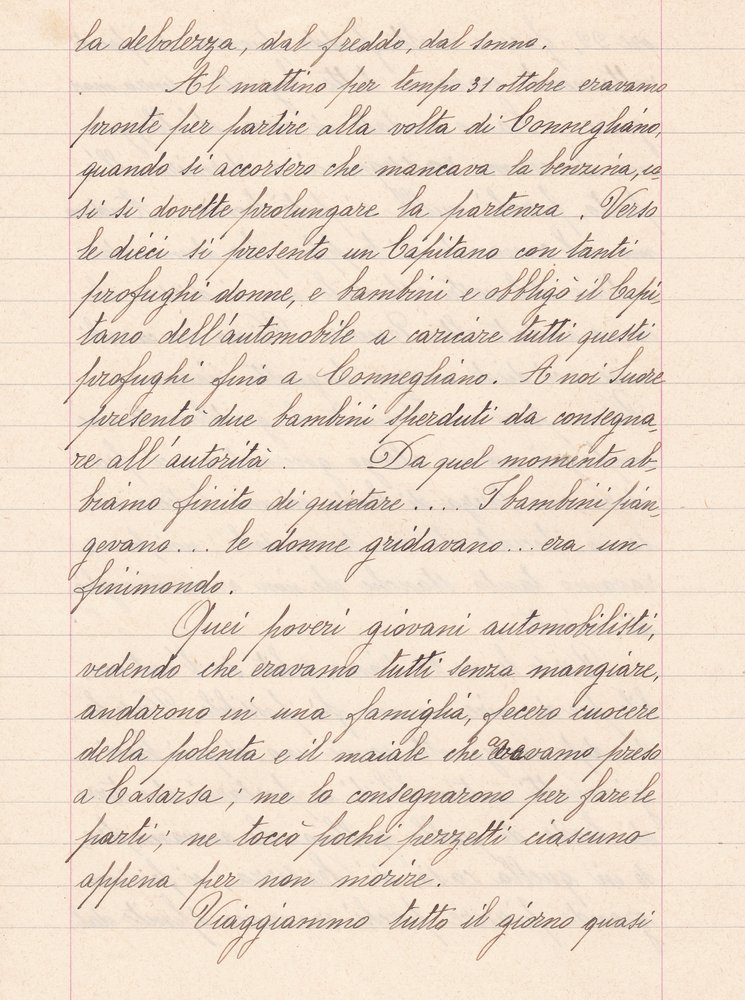 la debolezza, dal freddo, dal sonno.
Al mattino per tempo 31 ottobre eravamo
pronte per partire alla volta di Connegliano,
quando si accorsero che mancava la benzina, co=
si si dovette prolungare la partenza. Verso
le dieci si presentò un Capitano con tanti
profughi donne, e bambini e obbligò il Capi=
tano dell'automobile a caricare tutti questi
profughi fino a Connegliano. A noi Suore
presentò due bambini sperduti da consegna=
re all'autorità. Da quel momento ab=
biamo finito di quietare .... I bambini pian=
gevano... le donne gridavano... era un
finimondo.
Quei poveri giovani automobilisti,
vedendo che eravamo tutti senza mangiare,
andarono in una famiglia, fecero cuocere
della polenta e il maiale che avevamo preso
a Casarsa; me lo consegnarono per fare le
parti; ne toccò pochi pezzetti ciascuno
appena per non morire.
Viaggiammo tutto il giorno quasi